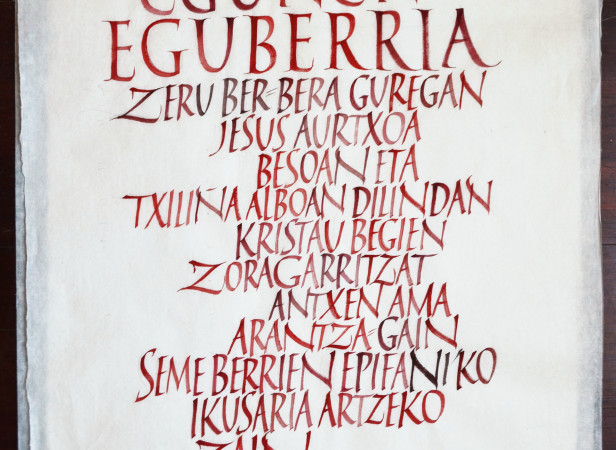 EGUNEN
EGUBERRIA
ZERU BER-BERA GUREGAN
JESUS AURTXOA
BESOAN ETA
TXILIÑA ALBOAN DILINDAN
KRISTAU BEGIEN
ZORAGARRITZAT
ANTXEN AMA
ARANTZA-GAIN
SEME BERRIEN EPIFANI KO
IKUSARIA ARTZEKO